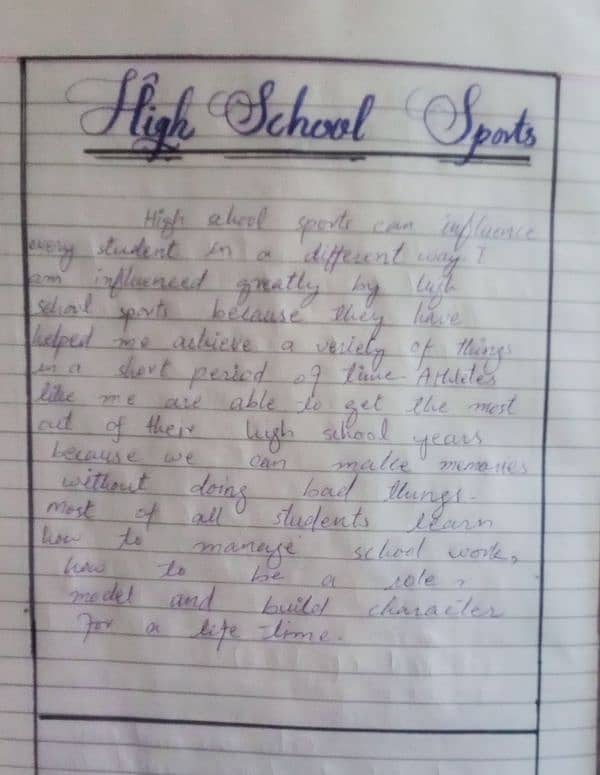 High School Sports
High school sports can influence
every student in a different way. I
am influenced greatly by high
school sports because they have
helped me achieve a veriety of things
in a short period of time. Athletes
like me are able to get the most
out of their high school years
because we can make memories
without doing bad things.
most of all students learn
how to manage school work,
how to be a role,
model and build character
For a life time.